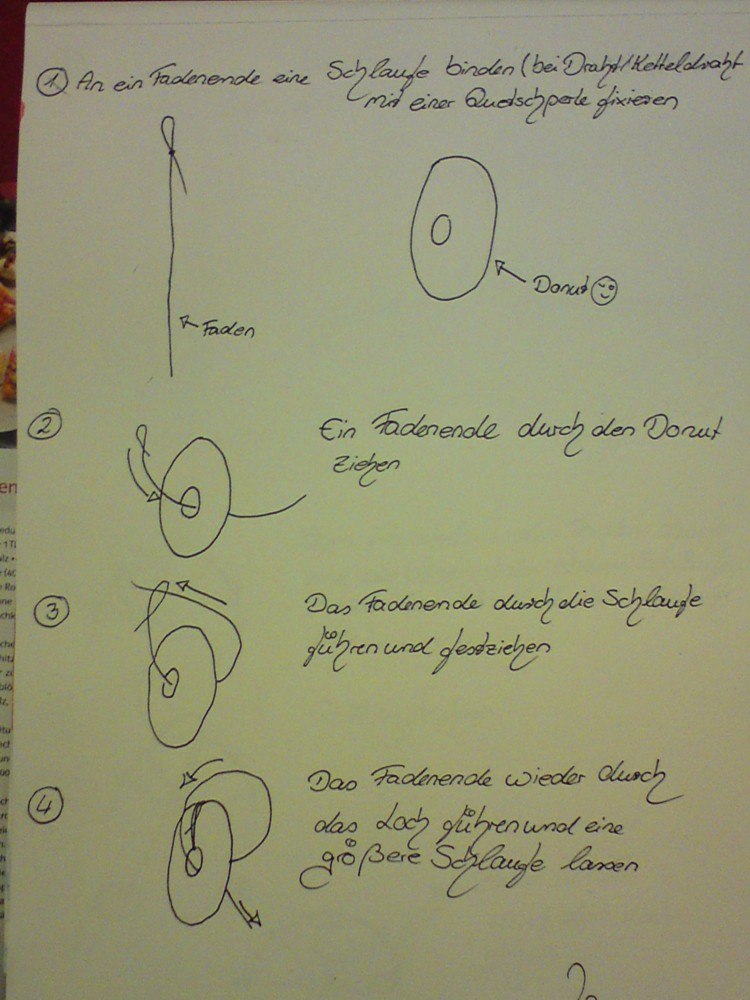 1. An ein Fadenende eine Schlaufe binden (bei Draht/Ketteldraht
mit einer Quetschperle fixieren
Donut
Faden
2 Ein Fadenende durch den Donut
ziehen
3 Das Fadenende durch die Schlaufe
führen und festziehen
4 Das Fadenende wieder durch
das Loch führen und eine
größere Schlaufe lassen